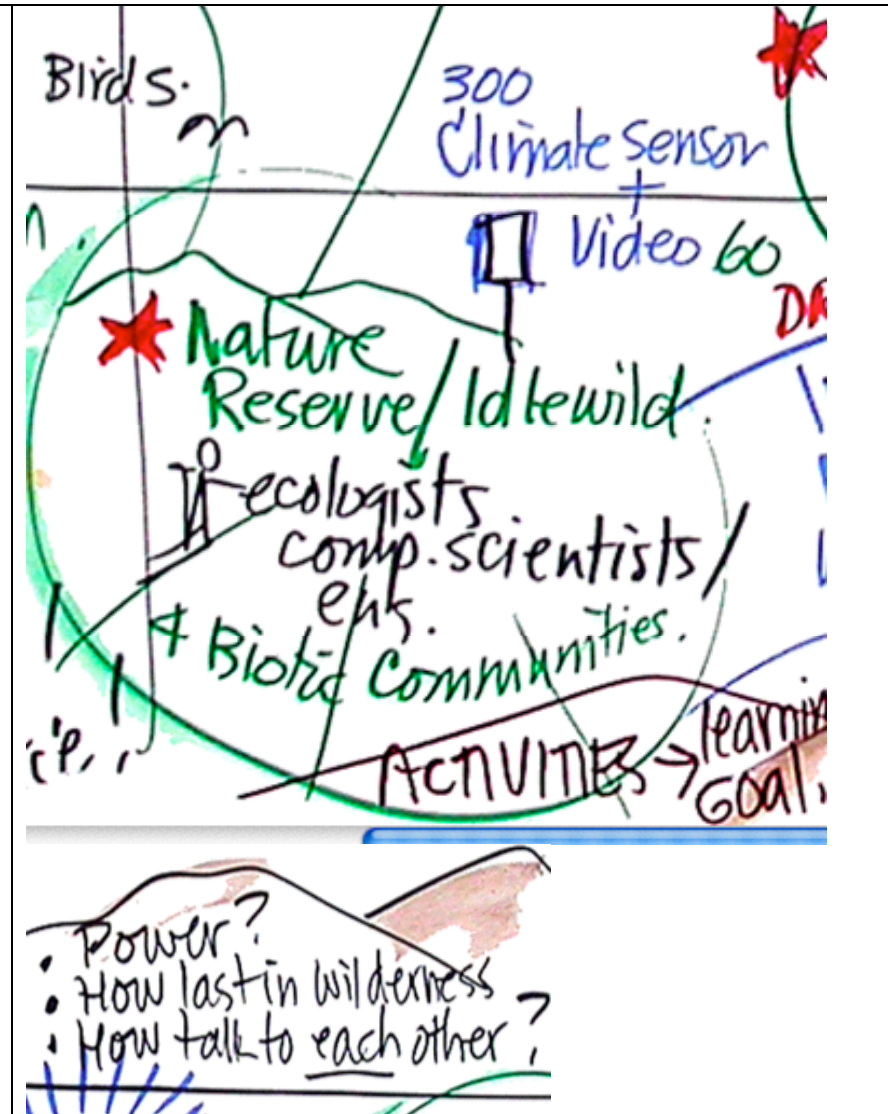 Birds.
300
Climate Sensor
+
Video 60
Nature
Reserve/Idlewild.
ecologists
comp. scientists/
+ Biotic Communities.
ACTIVITIES → learnin
Goal.
• Power?
• How last in wilderness
• How talk to each other?